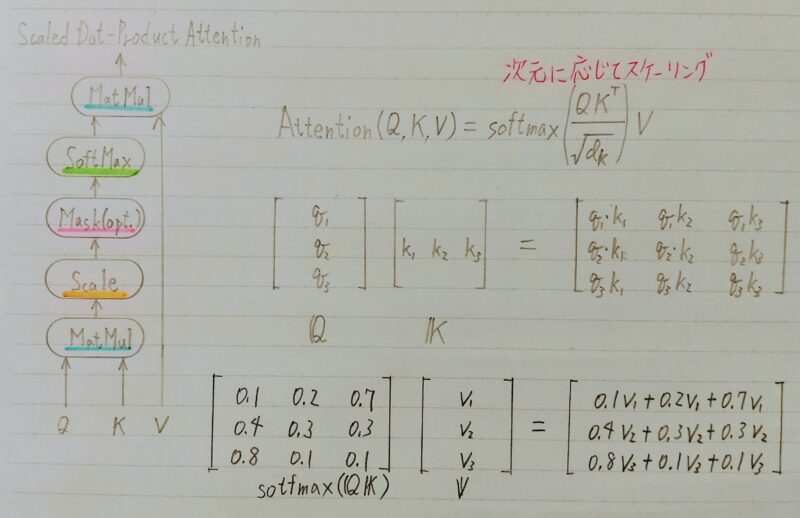 Scaled Dot-Product Attention
MatMul
SoftMax
Mask(opt.)
Scale
MatMul
Q K V
次元に応じてスケーリング
Attention(Q, K, V) = softmax(QKᵀ/√dₖ)V
[q₁ q₂ q₃] [k₁ k₂ k₃] = 
q₁·k₁ q₁k₂ q₁k₃
q₂·k₁ q₂·k₂ q₂k₃
q₃k₁ q₃k₂ q₃k₃
Q K
0.1 0.2 0.7
0.4 0.3 0.3
0.8 0.1 0.1
v₁
v₂
v₃
=
0.1v₁+0.2v₁+0.7v₁
0.4v₂+0.3v₂+0.3v₂
0.8v₃+0.1v₃+0.1v₃
sotfmax(QK) V